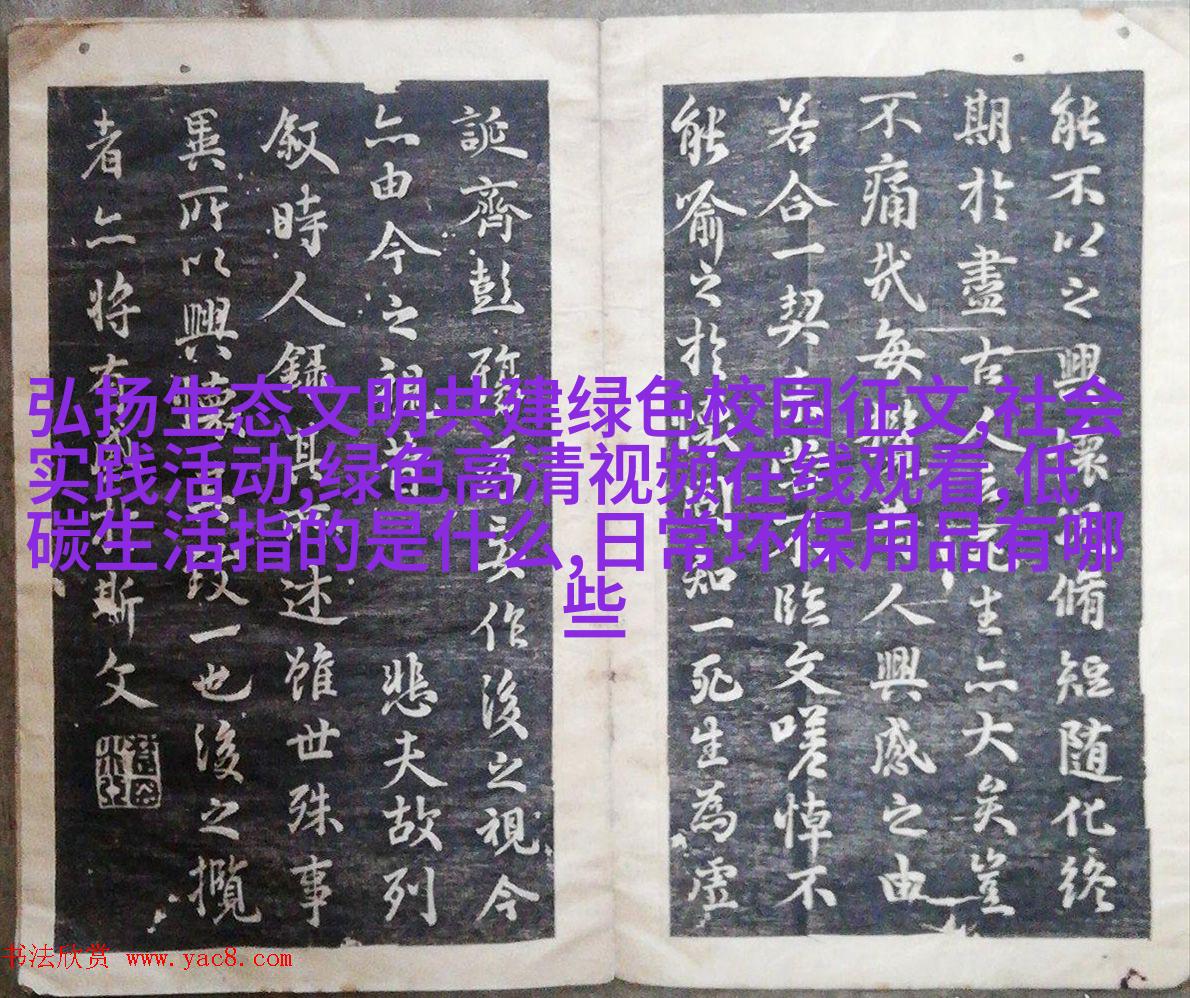 弘扬生态文明共建绿色校园征文,社会
实践活动,绿色高清视频在线观看,低
碳生活指的是什么,日常环保用品有哪
些
能不以之興懷况脩短随化終
期於盡古人云死生亦大矣豈
不痛哉每攬昔人興感之由
若合一契未嘗不臨文嗟悼不
能喻之於懷固知一死生為虛
誕齊彭殤為妄作後之視今
亦由今之視昔悲夫故列
敘時人錄其所述雖世殊事
異所以興懷其致一也後之攬
者亦將有感於斯文
书法欣赏 www.yac8.com